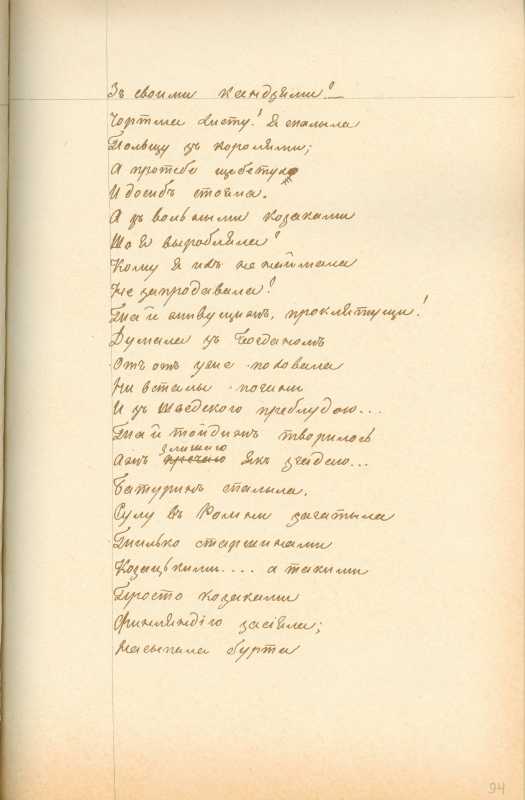 Зъ своими ксндзями!
Чортма хисту! Я спалыла
Польщу зъ королями;
А протебе щебетухо
И досибъ стояла.
А зъ вольными козаками
Що я выробляла!
Кому я ихъ не наймала
Не запродавала!
Та й живущижъ, проклятущи!
Думала зъ Богданомъ
Отъ отъ уже поховала
Ни всталы погани
И зъ Шведського преблудою...
Та й тойдижъ творилось
Ажъ злишаю якъ згадаю...
Батуринъ спалыла.
Сулу въ Ромни загатыла
Тилько старшинами
Козацькими.... а такими
Просто козаками
Финляндію засіяла;
Насыпала бурта
94